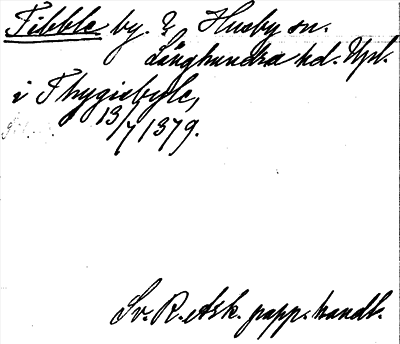 Tibble by. ? Husby sn.
Långhundra hd. Upl.
i Thygisbyle,
13/7 1379.
Sv. R. Ark. papp. handl.